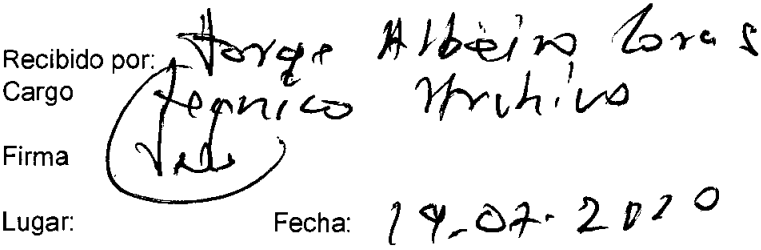 Recibido por: Jorge Albeiro
Cargo Tegnico Archivo
Firma
Lugar: Fecha: 14-07-2020